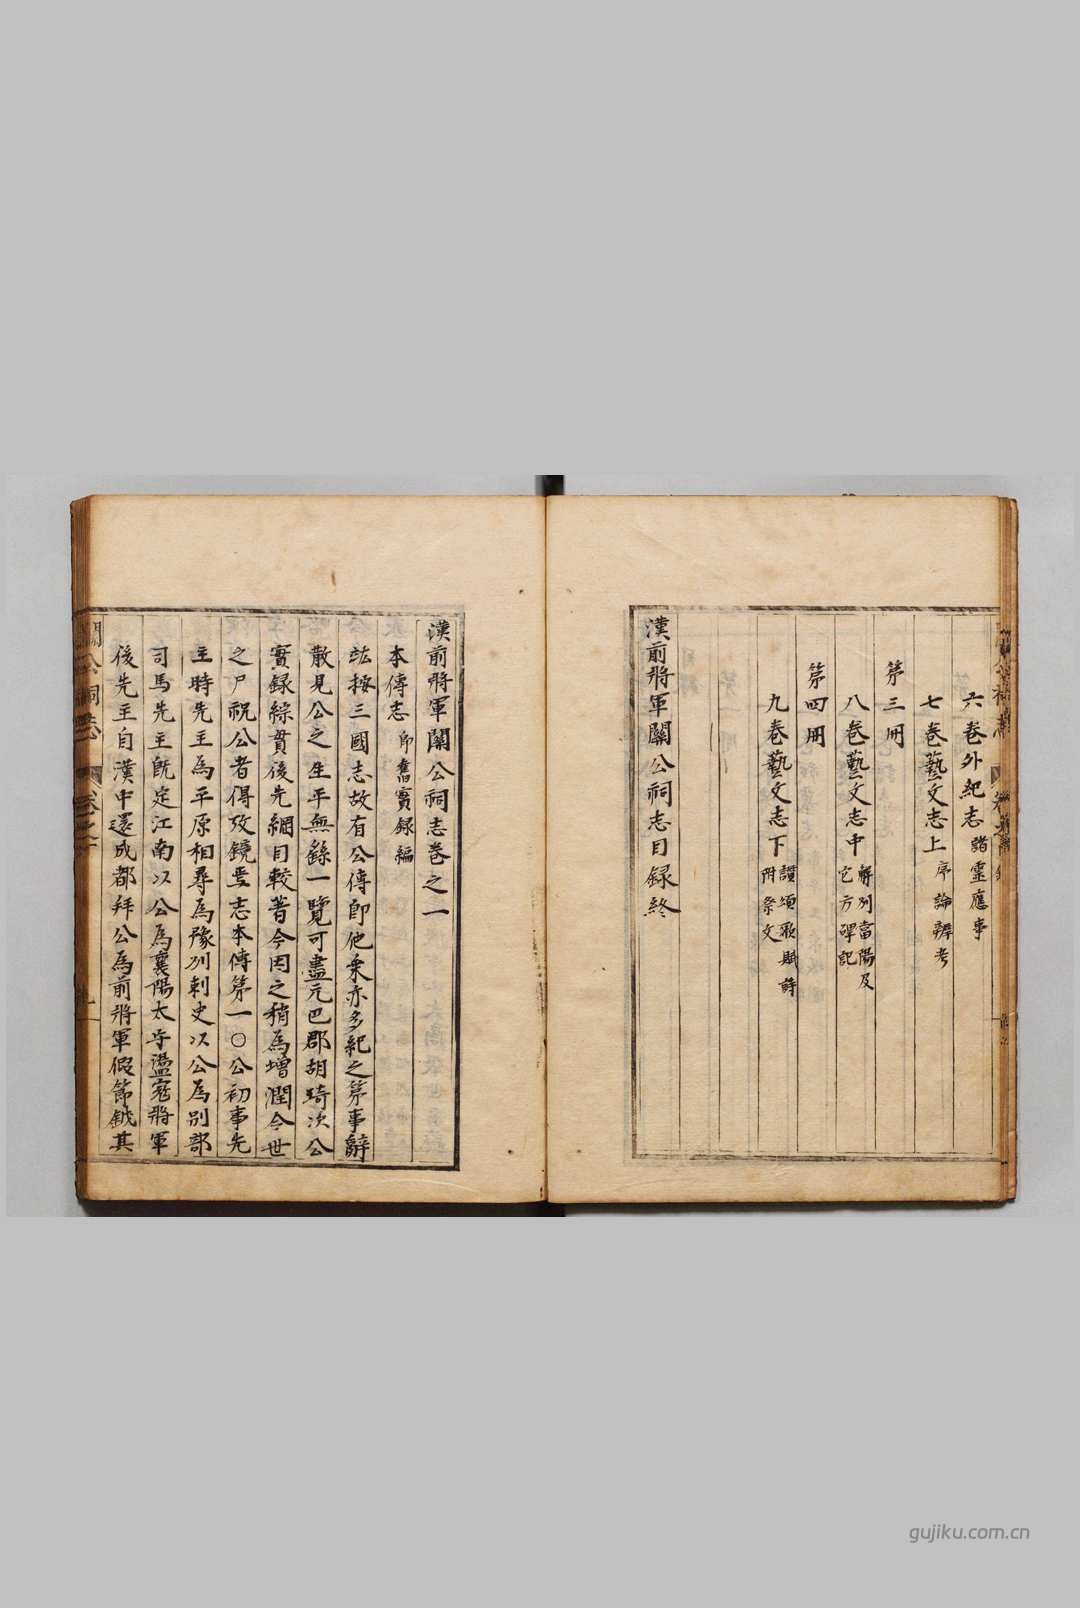 六卷外紀志 諸靈應事
七卷藝文志上 序論辨考
第三冊
八卷藝文志中 解列當陽及它方碑記
第四冊
九卷藝文志下 讃頌歌賦詩附祭文
漢前將軍關公祠志目録終
漢前將軍關公祠志卷之一
本傳志 即舊實録編
竑按三國志故有公傳即他乗亦多紀之第事辭
散見公之生平無繇一覽可盡元巴郡胡琦次公
實録綜貫後先綱目較著今因之稍為增潤令世
之尸祝公者得攷鏡焉志本傳第一〇公初事先
主時先主為平原相尋為豫州刺史以公為别部
司馬先主旣定江南以公為襄陽太守盪宼將軍
後先主自漢中還成都拜公為前將軍假節鉞其
關公祠志 卷之一
gujiku.com.cn